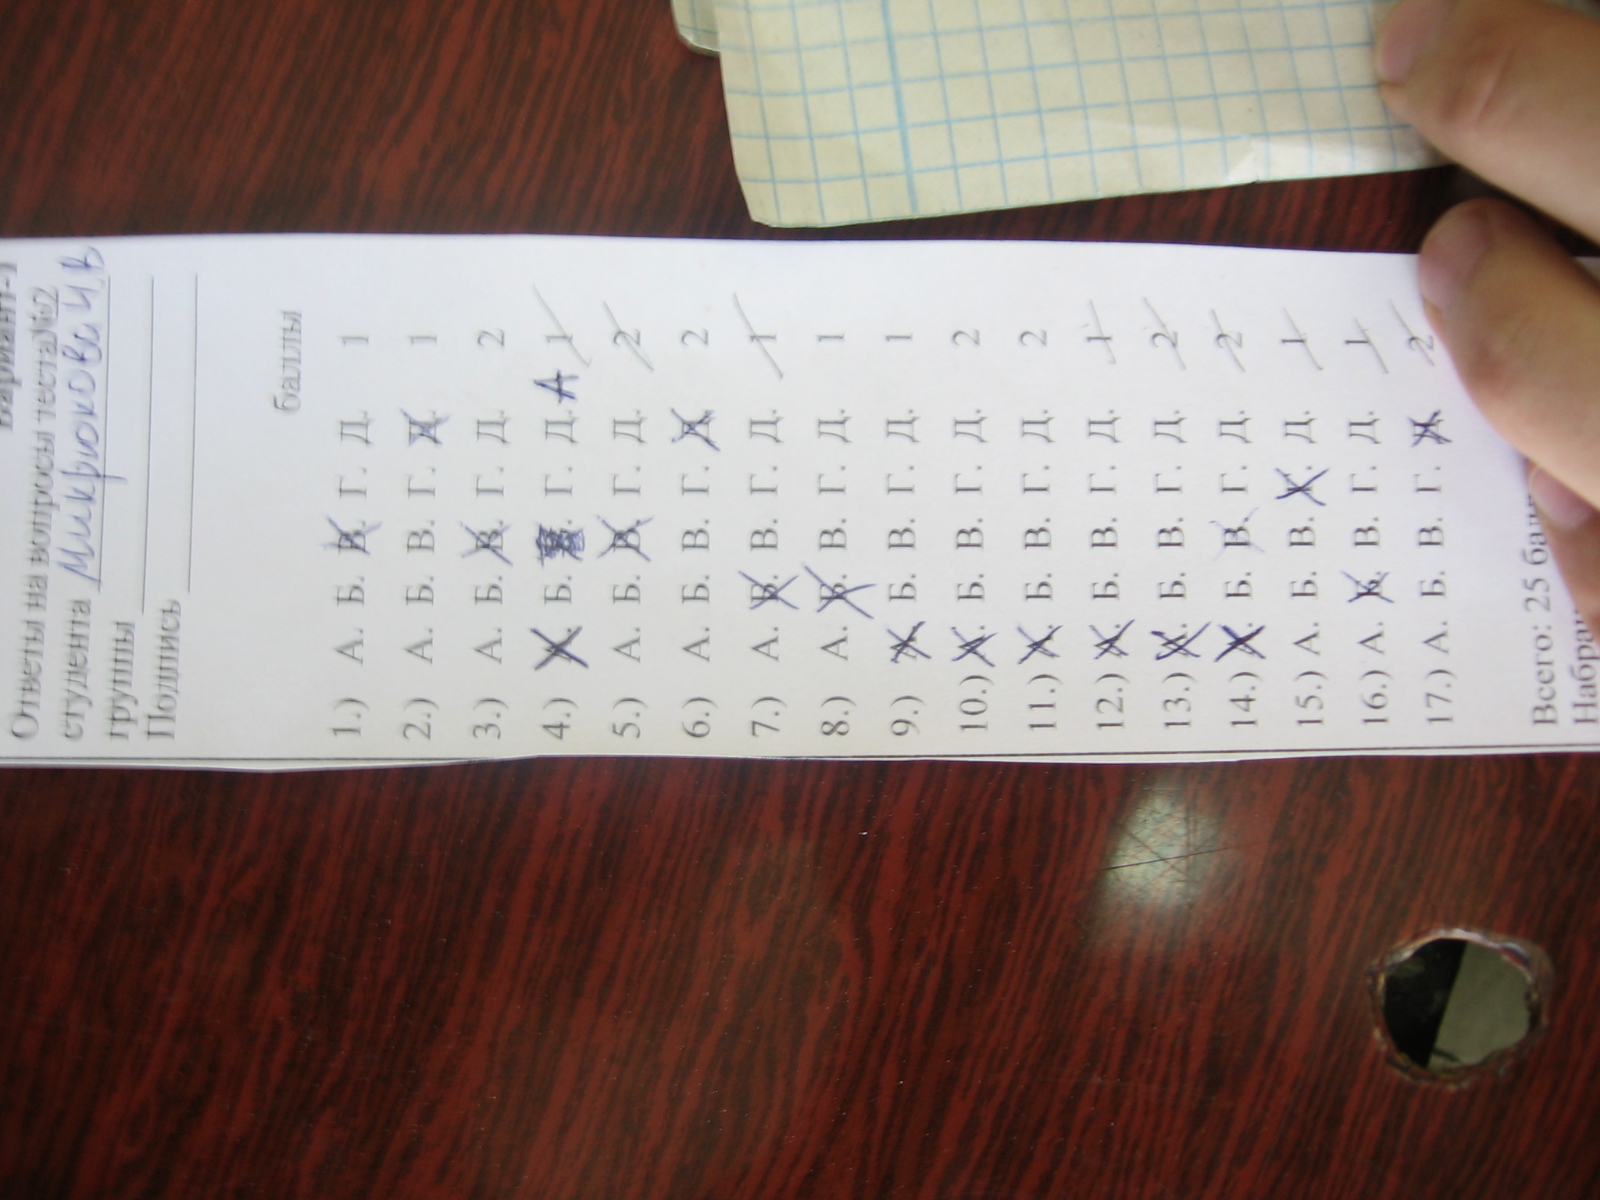 Вариант-1
Ответы на вопросы теста №2
студента Микрюкова И.В
группы
Подпись
баллы
1.) А. Б. В. Г. Д. 1
2.) А. Б. В. Г. Д. 1
3.) А. Б. В. Г. Д. 2
4.) А. Б. В. Г. Д. А 1
5.) А. Б. В. Г. Д. 2
6.) А. Б. В. Г. Д. 2
7.) А. Б. В. Г. Д. 1
8.) А. Б. В. Г. Д. 1
9.) А. Б. В. Г. Д. 1
10.) А. Б. В. Г. Д. 2
11.) А. Б. В. Г. Д. 2
12.) А. Б. В. Г. Д. 1
13.) А. Б. В. Г. Д. 2
14.) А. Б. В. Г. Д. 2
15.) А. Б. В. Г. Д. 1
16.) А. Б. В. Г. Д. 1
17.) А. Б. В. Г. Д. 2
Всего: 25